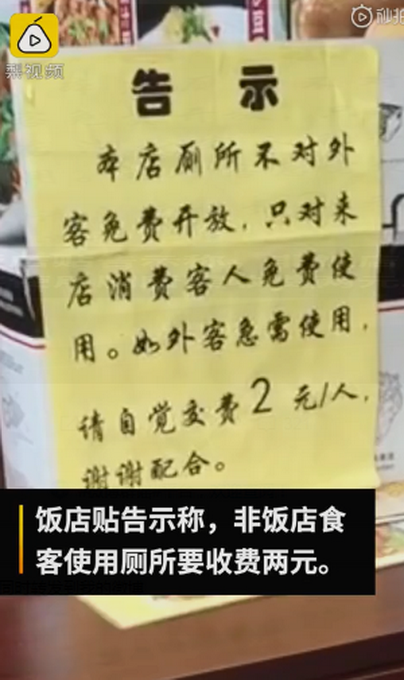 梨视频
秒拍
告示
本店厕所不对外
客免费开放,只对来
店消费客人免费使
用。如外客急需使用,
请自觉交费2元/人,
谢谢配合。
饭店贴告示称,非饭店食
客使用厕所要收费两元。